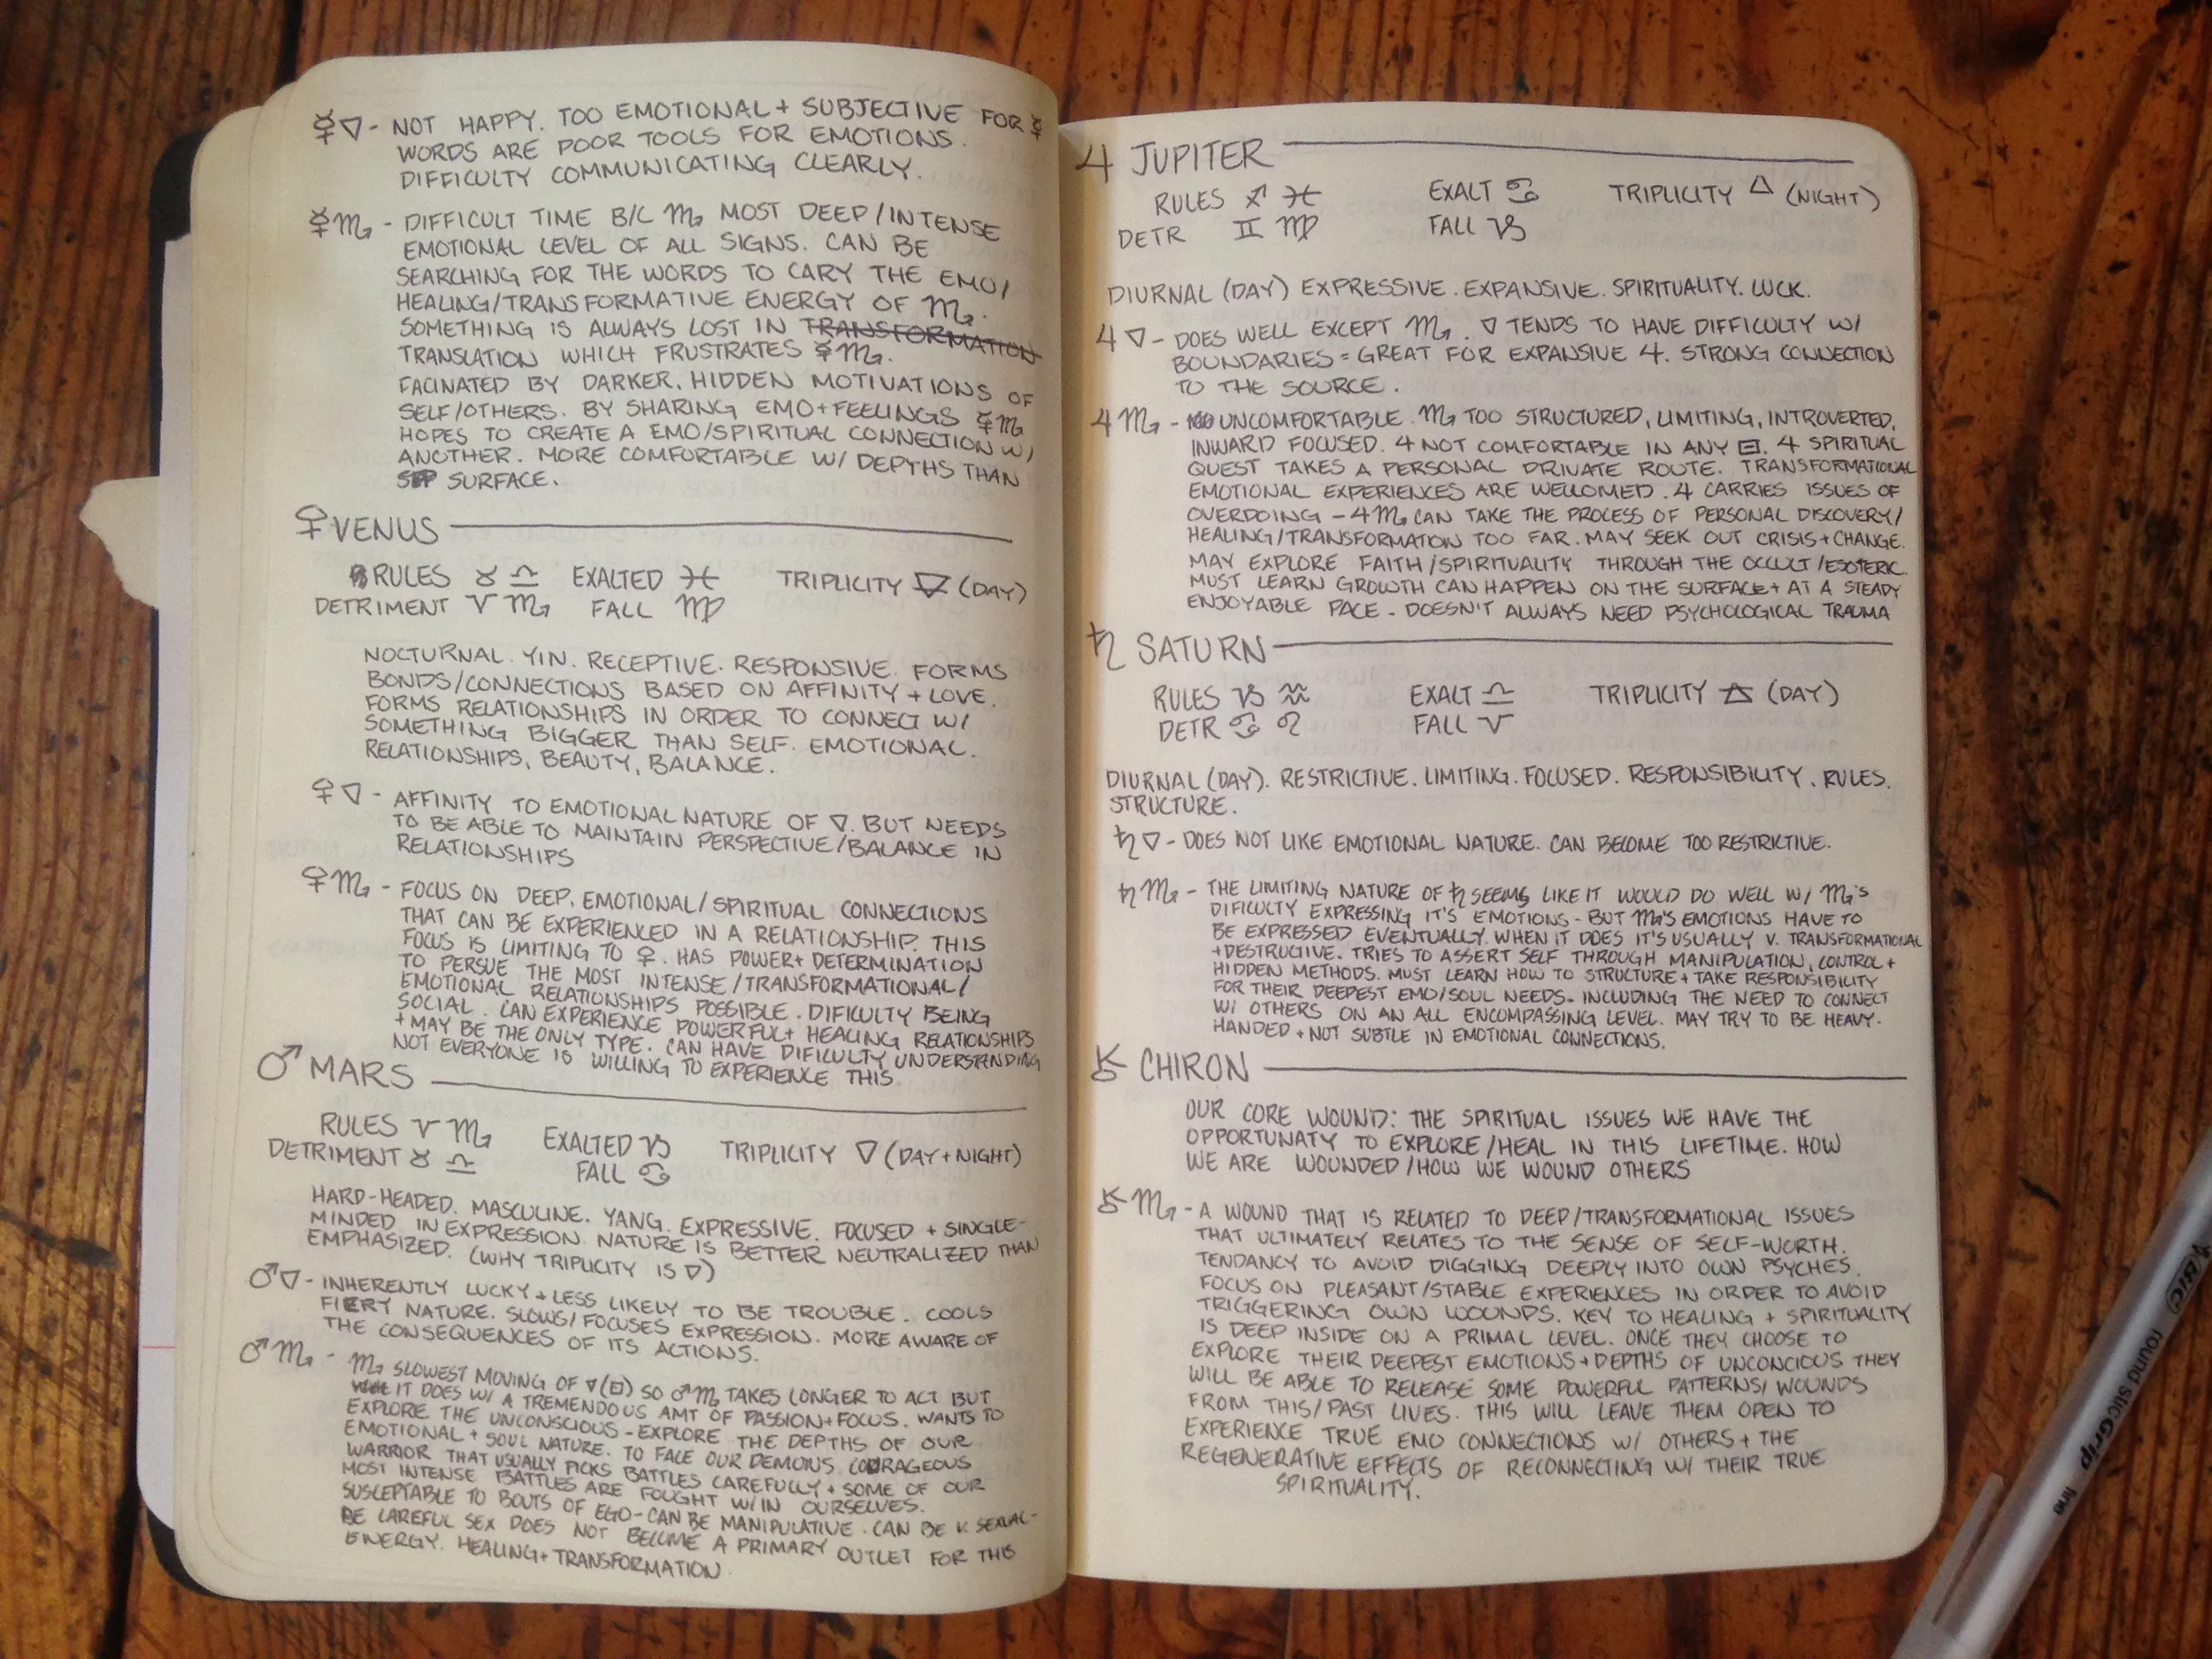 ☿▽ - NOT HAPPY. TOO EMOTIONAL + SUBJECTIVE FOR ☿
WORDS ARE POOR TOOLS FOR EMOTIONS.
DIFFICULTY COMMUNICATING CLEARLY.
☿♏ - DIFFICULT TIME B/C ♏ MOST DEEP/INTENSE
EMOTIONAL LEVEL OF ALL SIGNS. CAN BE
SEARCHING FOR THE WORDS TO CARY THE EMO/
HEALING/TRANSFORMATIVE ENERGY OF ♏.
SOMETHING IS ALWAYS LOST IN TRANSFORMATION
TRANSLATION WHICH FRUSTRATES ☿♏.
FACINATED BY DARKER, HIDDEN MOTIVATIONS OF
SELF/OTHERS. BY SHARING EMO+FEELINGS ☿♏
HOPES TO CREATE A EMO/SPIRITUAL CONNECTION W/
ANOTHER. MORE COMFORTABLE W/ DEPTHS THAN
SURFACE.
♀ VENUS
RULES ♉ ♎ EXALTED ♓ TRIPLICITY ▽ (DAY)
DETRIMENT ♈ ♏ FALL ♍
NOCTURNAL. YIN. RECEPTIVE. RESPONSIVE. FORMS
BONDS/CONNECTIONS BASED ON AFFINITY + LOVE.
FORMS RELATIONSHIPS IN ORDER TO CONNECT W/
SOMETHING BIGGER THAN SELF. EMOTIONAL.
RELATIONSHIPS, BEAUTY, BALANCE.
♀▽ - AFFINITY TO EMOTIONAL NATURE OF ▽. BUT NEEDS
TO BE ABLE TO MAINTAIN PERSPECTIVE/BALANCE IN
RELATIONSHIPS
♀♏ - FOCUS ON DEEP, EMOTIONAL/SPIRITUAL CONNECTIONS
THAT CAN BE EXPERIENCED IN A RELATIONSHIP. THIS
FOCUS IS LIMITING TO ♀. HAS POWER+ DETERMINATION
TO PERSUE THE MOST INTENSE/TRANSFORMATIONAL/
EMOTIONAL RELATIONSHIPS POSSIBLE. DIFICULTY BEING
SOCIAL. CAN EXPERIENCE POWERFUL+ HEALING RELATIONSHIPS
+ MAY BE THE ONLY TYPE. CAN HAVE DIFICULTY UNDERSTANDING
NOT EVERYONE IS WILLING TO EXPERIENCE THIS.
♂ MARS
RULES ♈ ♏ EXALTED ♑ TRIPLICITY ▽ (DAY+NIGHT)
DETRIMENT ♉ ♎ FALL ♋
HARD-HEADED. MASCULINE. YANG. EXPRESSIVE. FOCUSED + SINGLE-
MINDED IN EXPRESSION. NATURE IS BETTER NEUTRALIZED THAN
EMPHASIZED. (WHY TRIPLICITY IS ▽)
♂▽ - INHERENTLY LUCKY + LESS LIKELY TO BE TROUBLE. COOLS
FIERY NATURE. SLOWS/FOCUSES EXPRESSION. MORE AWARE OF
THE CONSEQUENCES OF ITS ACTIONS.
♂♏ - ♏ SLOWEST MOVING OF ▽(⊟) SO ♂♏ TAKES LONGER TO ACT BUT
IT DOES W/ A TREMENDOUS AMT OF PASSION+FOCUS. WANTS TO
EXPLORE THE UNCONSCIOUS - EXPLORE THE DEPTHS OF OUR
EMOTIONAL + SOUL NATURE. TO FACE OUR DEMONS. COURAGEOUS
WARRIOR THAT USUALLY PICKS BATTLES CAREFULLY + SOME OF OUR
MOST INTENSE BATTLES ARE FOUGHT W/IN OURSELVES.
SUSCEPTABLE TO BOUTS OF EGO-CAN BE MANIPULATIVE. CAN BE V. SEXUAL-
BE CAREFUL SEX DOES NOT BECOME A PRIMARY OUTLET FOR THIS
ENERGY. HEALING+TRANSFORMATION.
♃ JUPITER
RULES ♐ ♓ EXALT ♋ TRIPLICITY △ (NIGHT)
DETR ♊ ♍ FALL ♑
DIURNAL (DAY) EXPRESSIVE. EXPANSIVE. SPIRITUALITY. LUCK.
♃▽ - DOES WELL EXCEPT ♏. ▽ TENDS TO HAVE DIFFICULTY W/
BOUNDARIES = GREAT FOR EXPANSIVE ♃. STRONG CONNECTION
TO THE SOURCE.
♃♏ - UNCOMFORTABLE. ♏ TOO STRUCTURED, LIMITING, INTROVERTED,
INWARD FOCUSED. ♃ NOT COMFORTABLE IN ANY ⊟. ♃ SPIRITUAL
QUEST TAKES A PERSONAL PRIVATE ROUTE. TRANSFORMATIONAL
EMOTIONAL EXPERIENCES ARE WELLOMED. ♃ CARRIES ISSUES OF
OVERDOING - ♃♏ CAN TAKE THE PROCESS OF PERSONAL DISCOVERY/
HEALING/TRANSFORMATION TOO FAR. MAY SEEK OUT CRISIS+CHANGE.
MAY EXPLORE FAITH/SPIRITUALITY THROUGH THE OCCULT/ESOTERIC.
MUST LEARN GROWTH CAN HAPPEN ON THE SURFACE+ AT A STEADY
ENJOYABLE PACE - DOESN'T ALWAYS NEED PSYCHOLOGICAL TRAUMA
♄ SATURN
RULES ♑ ♒ EXALT ♎ TRIPLICITY 🜁 (DAY)
DETR ♋ ♌ FALL ♈
DIURNAL (DAY). RESTRICTIVE. LIMITING. FOCUSED. RESPONSIBILITY. RULES.
STRUCTURE.
♄▽ - DOES NOT LIKE EMOTIONAL NATURE. CAN BECOME TOO RESTRICTIVE.
♄♏ - THE LIMITING NATURE OF ♄ SEEMS LIKE IT WOULD DO WELL W/ ♏'S
DIFICULTY EXPRESSING IT'S EMOTIONS - BUT ♏'S EMOTIONS HAVE TO
BE EXPRESSED EVENTUALLY. WHEN IT DOES IT'S USUALLY V. TRANSFORMATIONAL
+DESTRUCTIVE. TRIES TO ASSERT SELF THROUGH MANIPULATION, CONTROL +
HIDDEN METHODS. MUST LEARN HOW TO STRUCTURE + TAKE RESPONSIBILITY
FOR THEIR DEEPEST EMO/SOUL NEEDS - INCLUDING THE NEED TO CONNECT
W/ OTHERS ON AN ALL ENCOMPASSING LEVEL. MAY TRY TO BE HEAVY-
HANDED + NOT SUBTLE IN EMOTIONAL CONNECTIONS.
⚷ CHIRON
OUR CORE WOUND: THE SPIRITUAL ISSUES WE HAVE THE
OPPORTUNATY TO EXPLORE/HEAL IN THIS LIFETIME. HOW
WE ARE WOUNDED/HOW WE WOUND OTHERS
⚷♏ - A WOUND THAT IS RELATED TO DEEP/TRANSFORMATIONAL ISSUES
THAT ULTIMATELY RELATES TO THE SENSE OF SELF-WORTH.
TENDANCY TO AVOID DIGGING DEEPLY INTO OWN PSYCHES.
FOCUS ON PLEASANT/STABLE EXPERIENCES IN ORDER TO AVOID
TRIGGERING OWN WOUNDS. KEY TO HEALING + SPIRITUALITY
IS DEEP INSIDE ON A PRIMAL LEVEL. ONCE THEY CHOOSE TO
EXPLORE THEIR DEEPEST EMOTIONS+DEPTHS OF UNCONCIOUS THEY
WILL BE ABLE TO RELEASE SOME POWERFUL PATTERNS/WOUNDS
FROM THIS/PAST LIVES. THIS WILL LEAVE THEM OPEN TO
EXPERIENCE TRUE EMO CONNECTIONS W/ OTHERS + THE
REGENERATIVE EFFECTS OF RECONNECTING W/ THEIR TRUE
SPIRITUALITY.
BIC round stic Grip fine